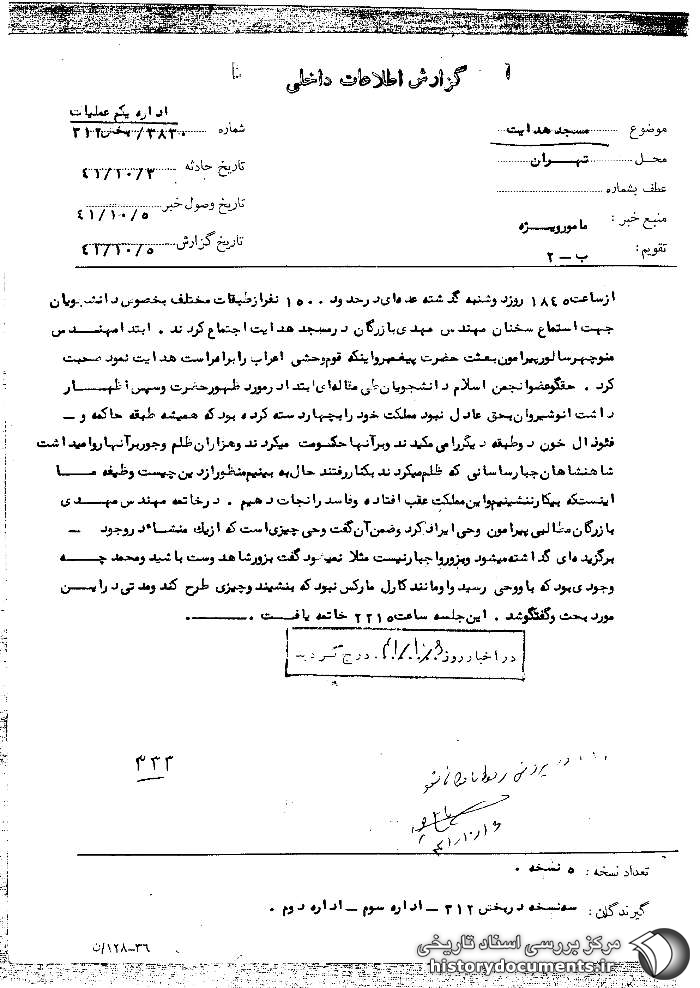 گزارش اطلاعات داخلی
اداره یکم عملیات
موضوع مسجد هدایت
شماره ۳۸۳۰/بخش ۳۱۲
محل تهران
تاریخ حادثه ۴۱/۱۰/۳
عطف بشماره
تاریخ وصول خبر ۴۱/۱۰/۵
منبع خبر : مامور ویژه
تاریخ گزارش ۴۱/۱۰/۵
تقویم : ب – ۲
از ساعت ۱۸۴۵ روز دوشنبه گذشته عده‌ای در حدود ۱۵۰۰ نفر از طبقات مختلف بخصوص دانشجویان
جهت استماع سخنان مهندس مهدی بازرگان در مسجد هدایت اجتماع کردند . ابتدا مهندس
منوچهر سالور پیرامون بعثت حضرت پیغمبر و اینکه قوم وحشی اعراب را براه راست هدایت نمود صحبت
کرد . حقگو عضو انجمن اسلام دانشجویان طی مقاله‌ای ابتدا در مورد ظهور حضرت و سپس اظهار
داشت انوشیروان بحق عادل نبود مملکت خود را بچهار دسته کرده بود که همیشه طبقه حاکمه و –
فئودال خون دو طبقه دیگر را میمکیدند و برآنها حکومت میکردند و هزاران ظلم و جور بر آنها روا میداشت
شاهنشاهان جبار ساسانی که ظلم میکردند بکنار رفتند حال به بینیم منظور از دین چیست وظیفه ما
اینستکه بیکار ننشینیم و این مملکت عقب افتاده و فاسد را نجات دهیم . در خاتمه مهندس مهدی
بازرگان مطالبی پیرامون وحی ایراد کرد و ضمن آن گفت وحی چیزی است که از یک منشاء در وجود –
برگزیده‌ای گذاشته میشود و بزور و اجبار نیست مثلا نمیشود گفت بزور شاهدوست باشید و محمد چه
وجودی بود که باو وحی رسید و او مانند کارل مارکس نبود که بنشیند و چیزی طرح کند و مدتی در این
مورد بحث و گفتگو شد . این جلسه ساعت ۲۲۱۵ خاتمه یافت .
در اخبار روز درج گردید
۳۳۳
۴۱/۱۰/۶
تعداد نسخه : ۵ نسخه .
گیرندگان : سه نسخه در بخش ۳۱۲ – اداره سوم – اداره دوم .
۳۶–۱۲۸/ن
مرکز بررسی اسناد تاریخی
historydocuments.ir